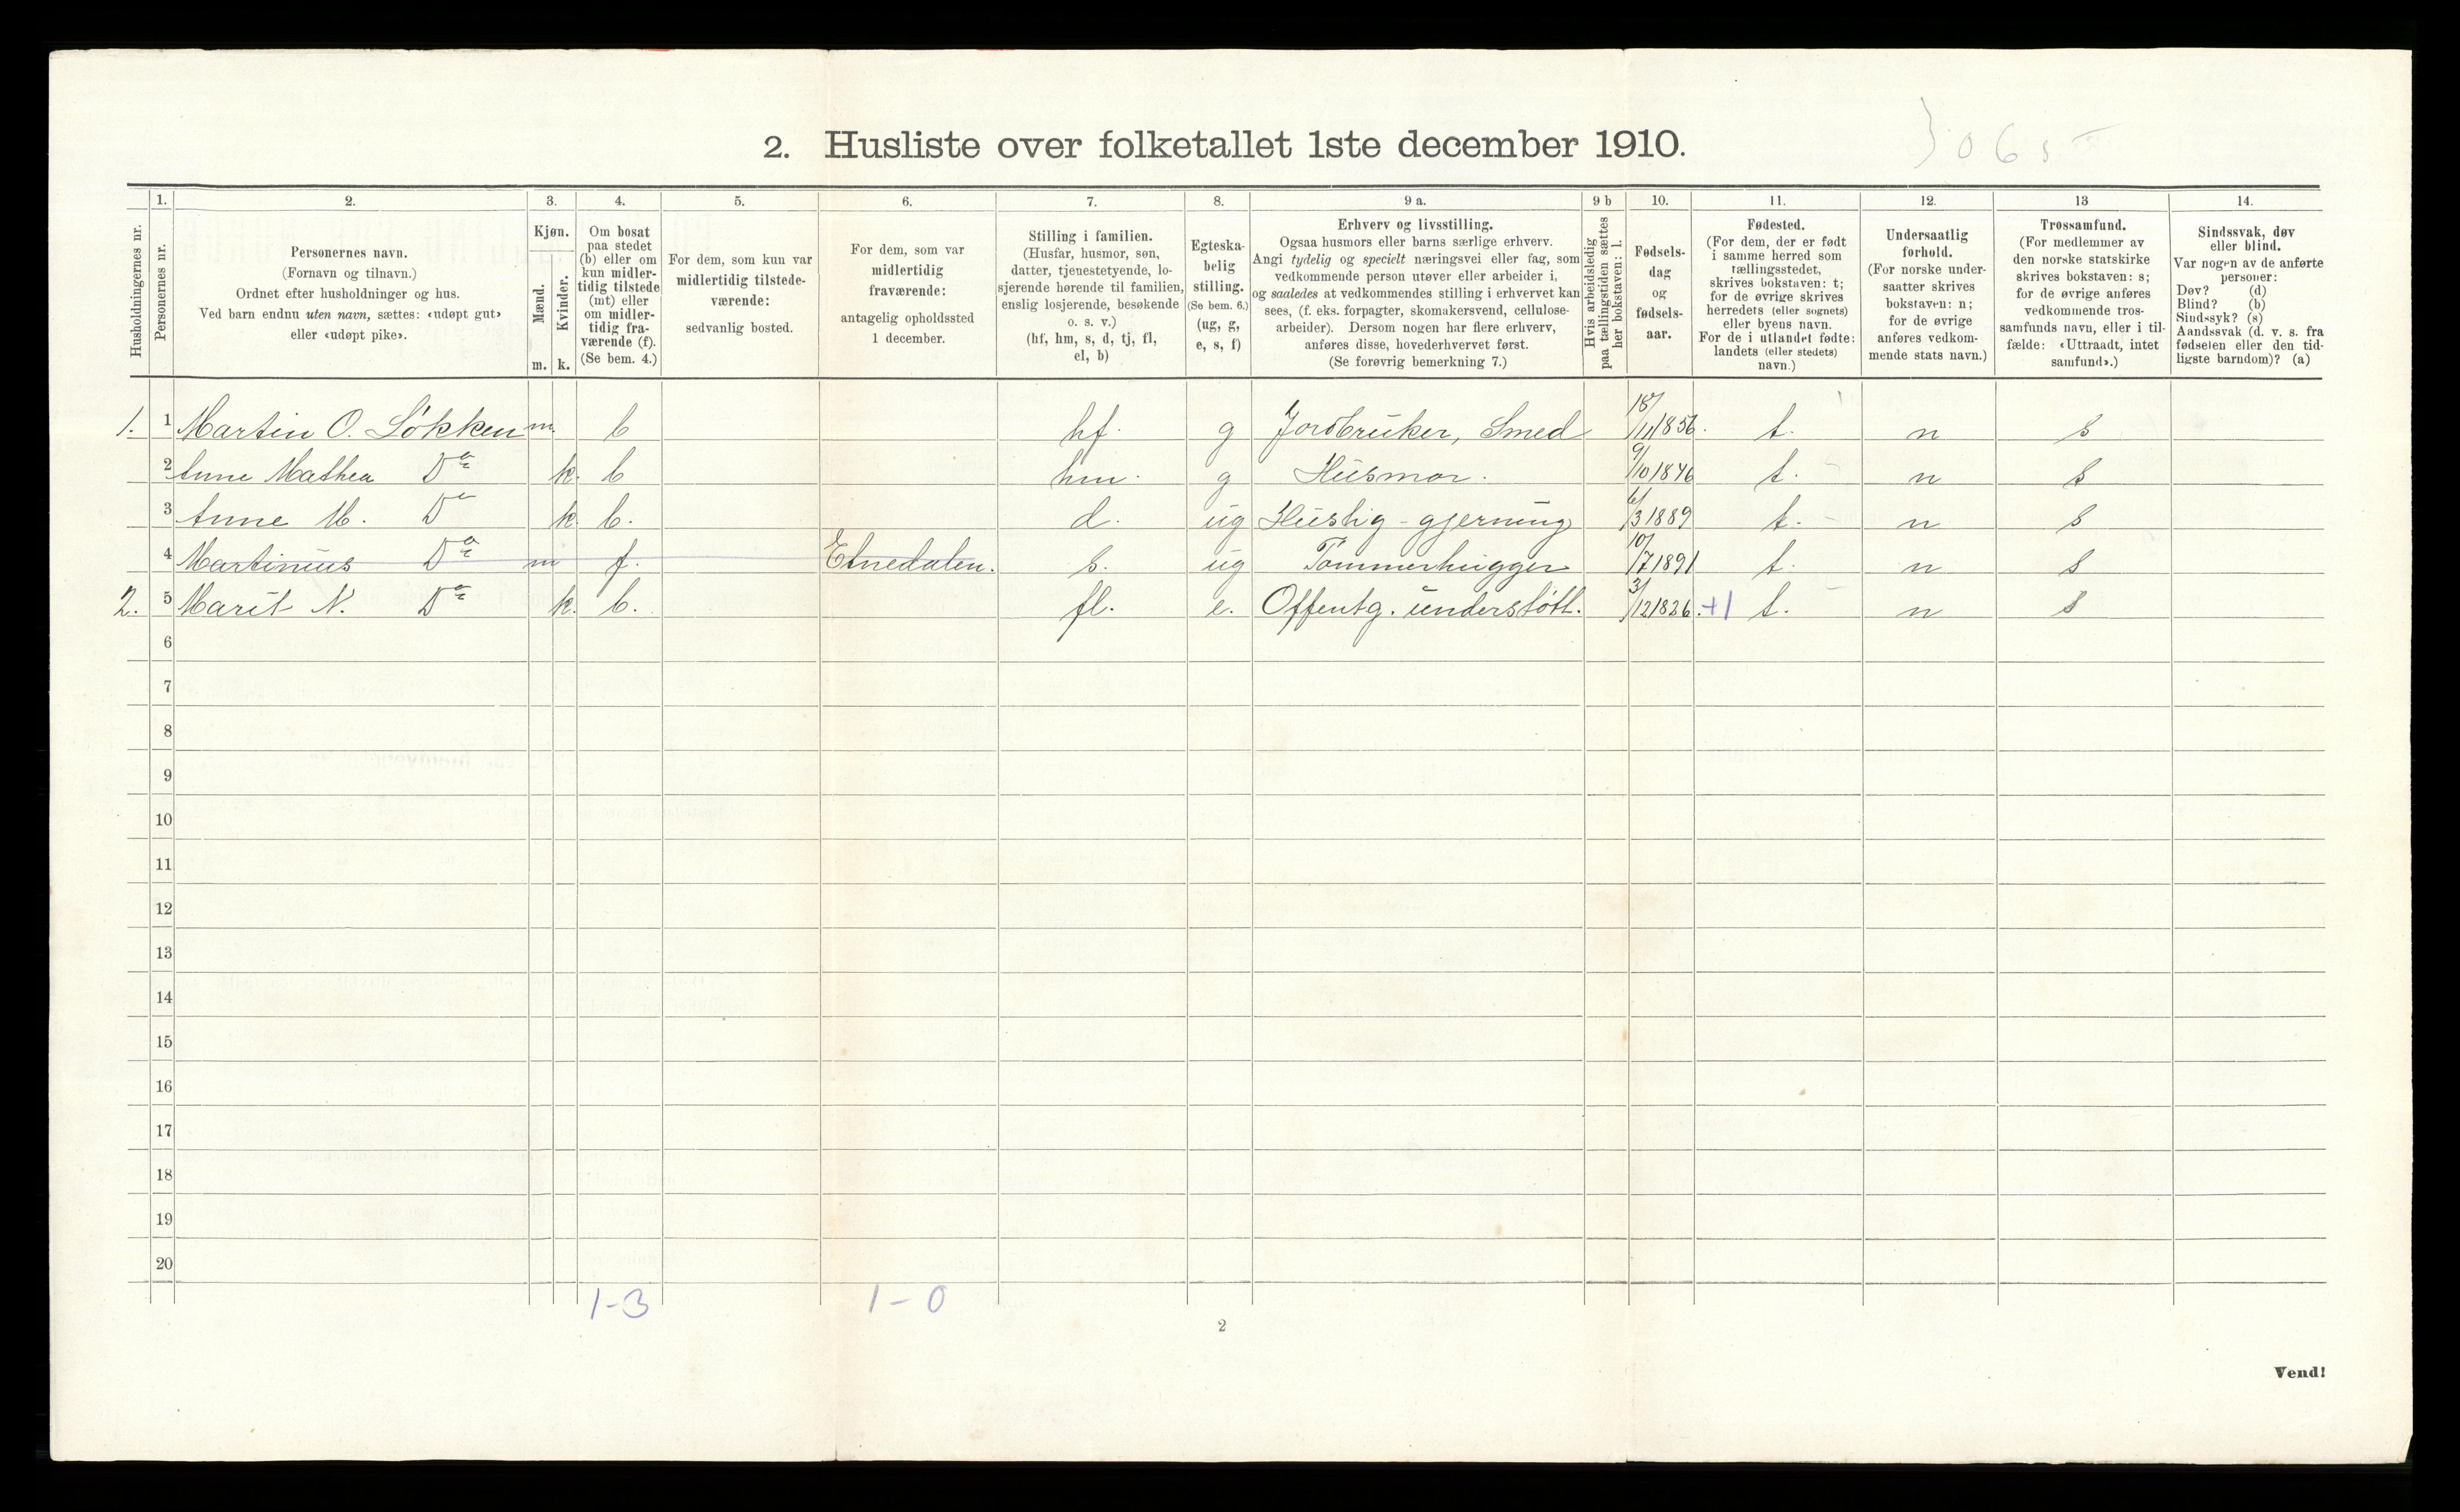 2. Husliste over folketallet 1ste december 1910.
Husholdningernes nr.
1.
Personernes nr.
2.
Personernes navn.
(Fornavn og tilnavn.)
Ordnet efter husholdninger og hus.
Ved barn endnu uten navn, sættes: «udøpt gut»
eller «udøpt pike».
3.
Kjøn.
Mænd.
Kvinder.
m. k.
4.
Om bosat
paa stedet
(b) eller om
kun midler-
tidig tilstede
(mt) eller
om midler-
tidig fra-
værende (f).
(Se bem. 4.)
5.
For dem, som kun var
midlertidig tilstede-
værende:
sedvanlig bosted.
6.
For dem, som var
midlertidig
fraværende:
antagelig opholdssted
1 december.
7.
Stilling i familien.
(Husfar, husmor, søn,
datter, tjenestetyende, lo-
sjerende hørende til familien,
enslig losjerende, besøkende
o. s. v.)
(hf, hm, s, d, tj, fl,
el, b)
8.
Egteska-
belig
stilling.
(Se bem. 6.)
(ug, g,
e, s, f)
9 a.
Erhverv og livsstilling.
Ogsaa husmors eller barns særlige erhverv.
Angi tydelig og specielt næringsvei eller fag, som
vedkommende person utøver eller arbeider i,
og saaledes at vedkommendes stilling i erhvervet kan
sees, (f. eks. forpagter, skomakersvend, cellulose-
arbeider). Dersom nogen har flere erhverv,
anføres disse, hovederhvervet først.
(Se forøvrig bemerkning 7.)
9 b
Hvis arbeidsledig
paa tællingstiden sættes
her bokstaven: l.
10.
Fødsels-
dag
og
fødsels-
aar.
11.
Fødested.
(For dem, der er født
i samme herred som
tællingsstedet,
skrives bokstaven: t;
for de øvrige skrives
herredets (eller sognets)
eller byens navn.
For de i utlandet fødte:
landets (eller stedets)
navn.)
12.
Undersaatlig
forhold.
(For norske under-
saatter skrives
bokstaven: n;
for de øvrige
anføres vedkom-
mende stats navn.)
13
Trossamfund.
(For medlemmer av
den norske statskirke
skrives bokstaven: s;
for de øvrige anføres
vedkommende tros-
samfunds navn, eller i til-
fælde: «Uttraadt, intet
samfund».)
14.
Sindssvak, døv
eller blind.
Var nogen av de anførte
personer:
Døv? (d)
Blind? (b)
Sindssyk? (s)
Aandssvak (d. v. s. fra
fødselen eller den tid-
ligste barndom)? (a)
1. 1 Martin O. Løkken m. b hf. g Jordbruker, Smed 18/11 1856. t. n s
2 Anne Mathea Do k. b hm. g Husmor. 9/10 1846 t. n s
3 Anne M. Do k. b. d. ug Huslig gjerning 6/3 1889 t. n s
4 Martinius Do m f. Etnedalen. s. ug Tømmerhugger 10/7 1891 t. n s
2. 5 Marit N. Do k. b. fl. e. Offentg. understøtt. 3/12 1826. +1 t. n s
6
7
8
9
10
11
12
13
14
15
16
17
18
19
20
1-3 1-0
2
Vend!